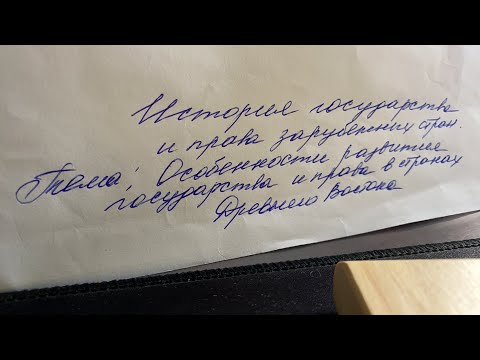 История государства
и права зарубежных стран.
Тема: Особенности развития
государства и права в странах
Древнего Востока